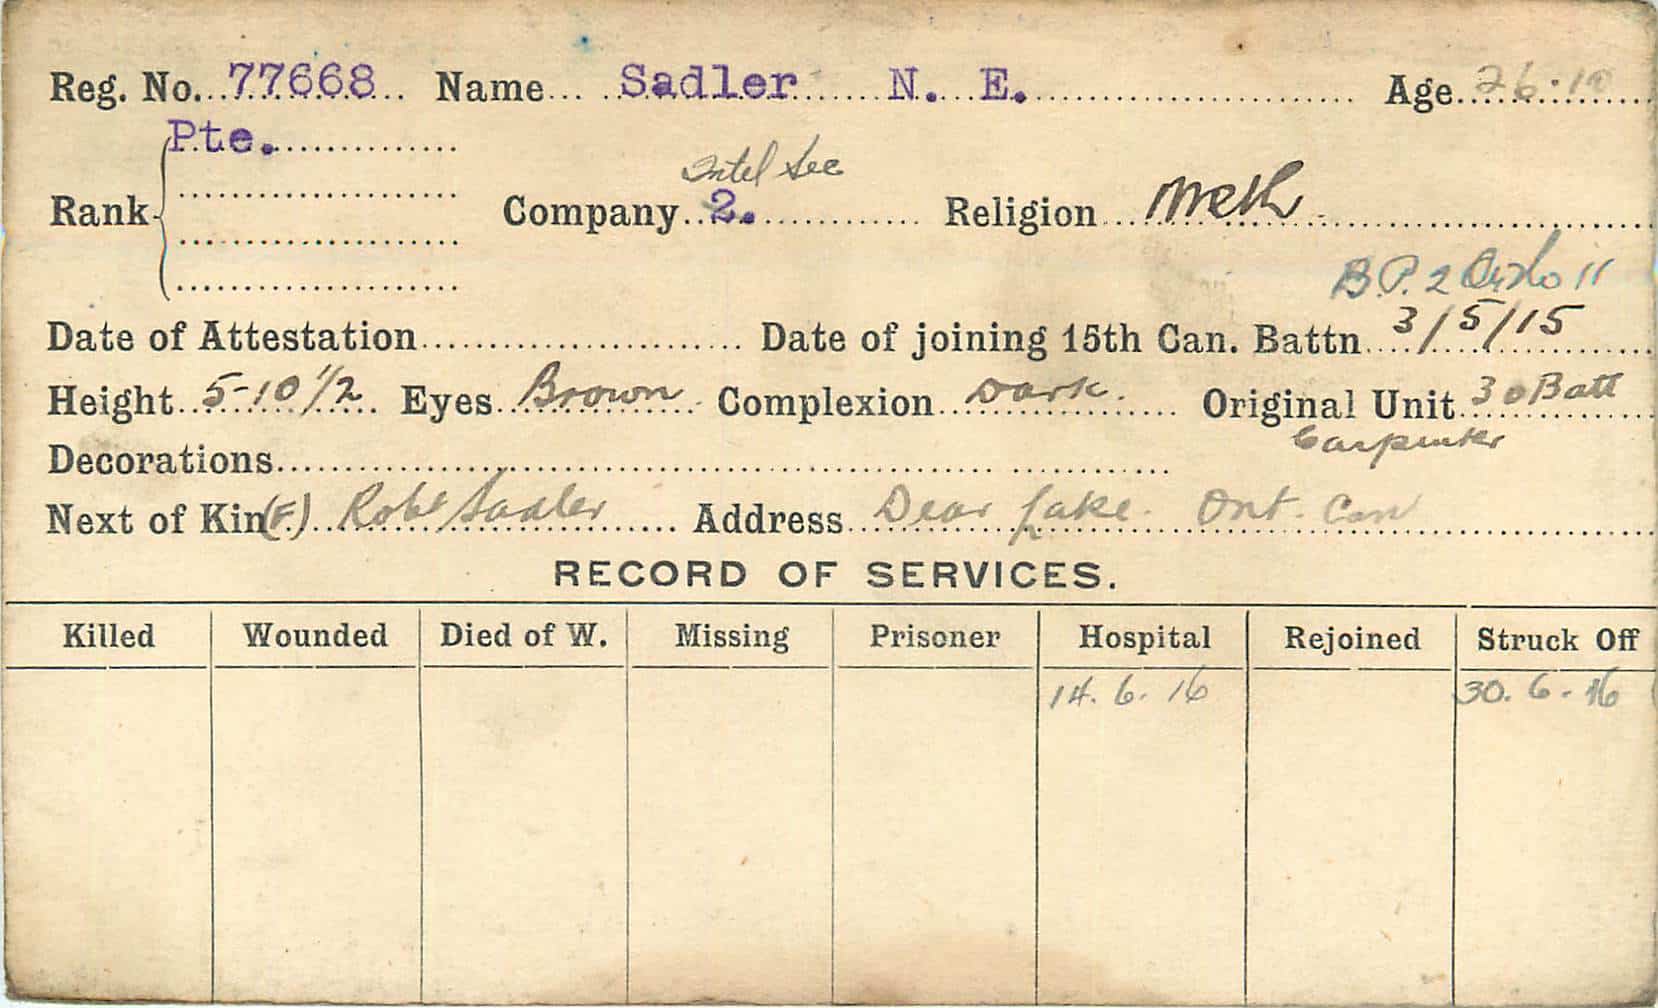 Reg. No. 77668 Name Sadler N. E. Age 26.10
Pte.
Intel Sec
Rank Company 2. Religion Meth
B.P. 2 11
Date of Attestation Date of joining 15th Can. Battn 3/5/15
Height 5-10 1/2 Eyes Brown Complexion Dark. Original Unit 30 Batt
Carpenter
Decorations
Next of Kin (F.) Robt Sadler Address Dear Lake. Ont. Can
RECORD OF SERVICES.
Killed Wounded Died of W. Missing Prisoner Hospital Rejoined Struck Off
14. 6. 16 30. 6. 16